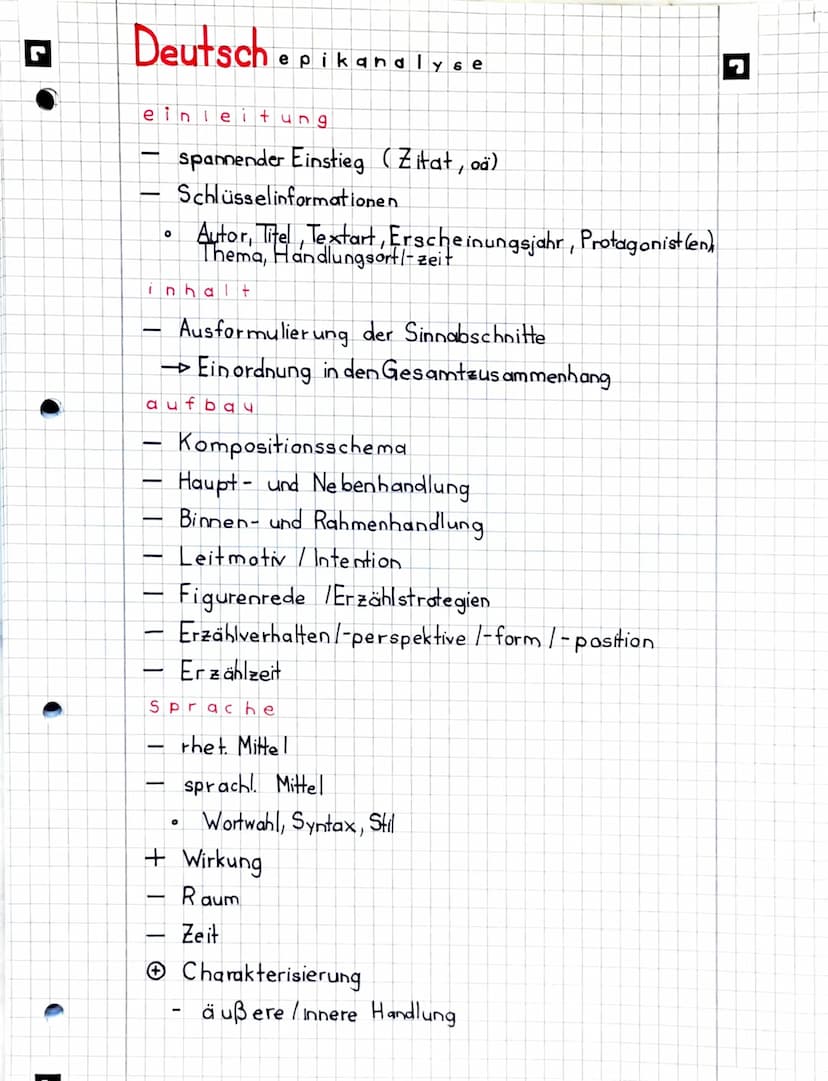 Deutsch epikanalyse
einleitung
– spannender Einstieg (Zitat, oä)
– Schlüsselinformationen
∘ Autor, Titel, Textart, Erscheinungsjahr, Protagonist(en)
Thema, Handlungsort/-zeit
inhalt
– Ausformulierung der Sinnabschnitte
→ Einordnung in den Gesamtzusammenhang
aufbau
– Kompositionsschema
– Haupt- und Nebenhandlung
– Binnen- und Rahmenhandlung
– Leitmotiv / Intention
– Figurenrede / Erzählstrategien
– Erzählverhalten/-perspektive /-form /-position
– Erzählzeit
Sprache
– rhet. Mittel
– sprachl. Mittel
• Wortwahl, Syntax, Stil
+ Wirkung
– Raum
– Zeit
⊕ Charakterisierung
- äußere / innere Handlung